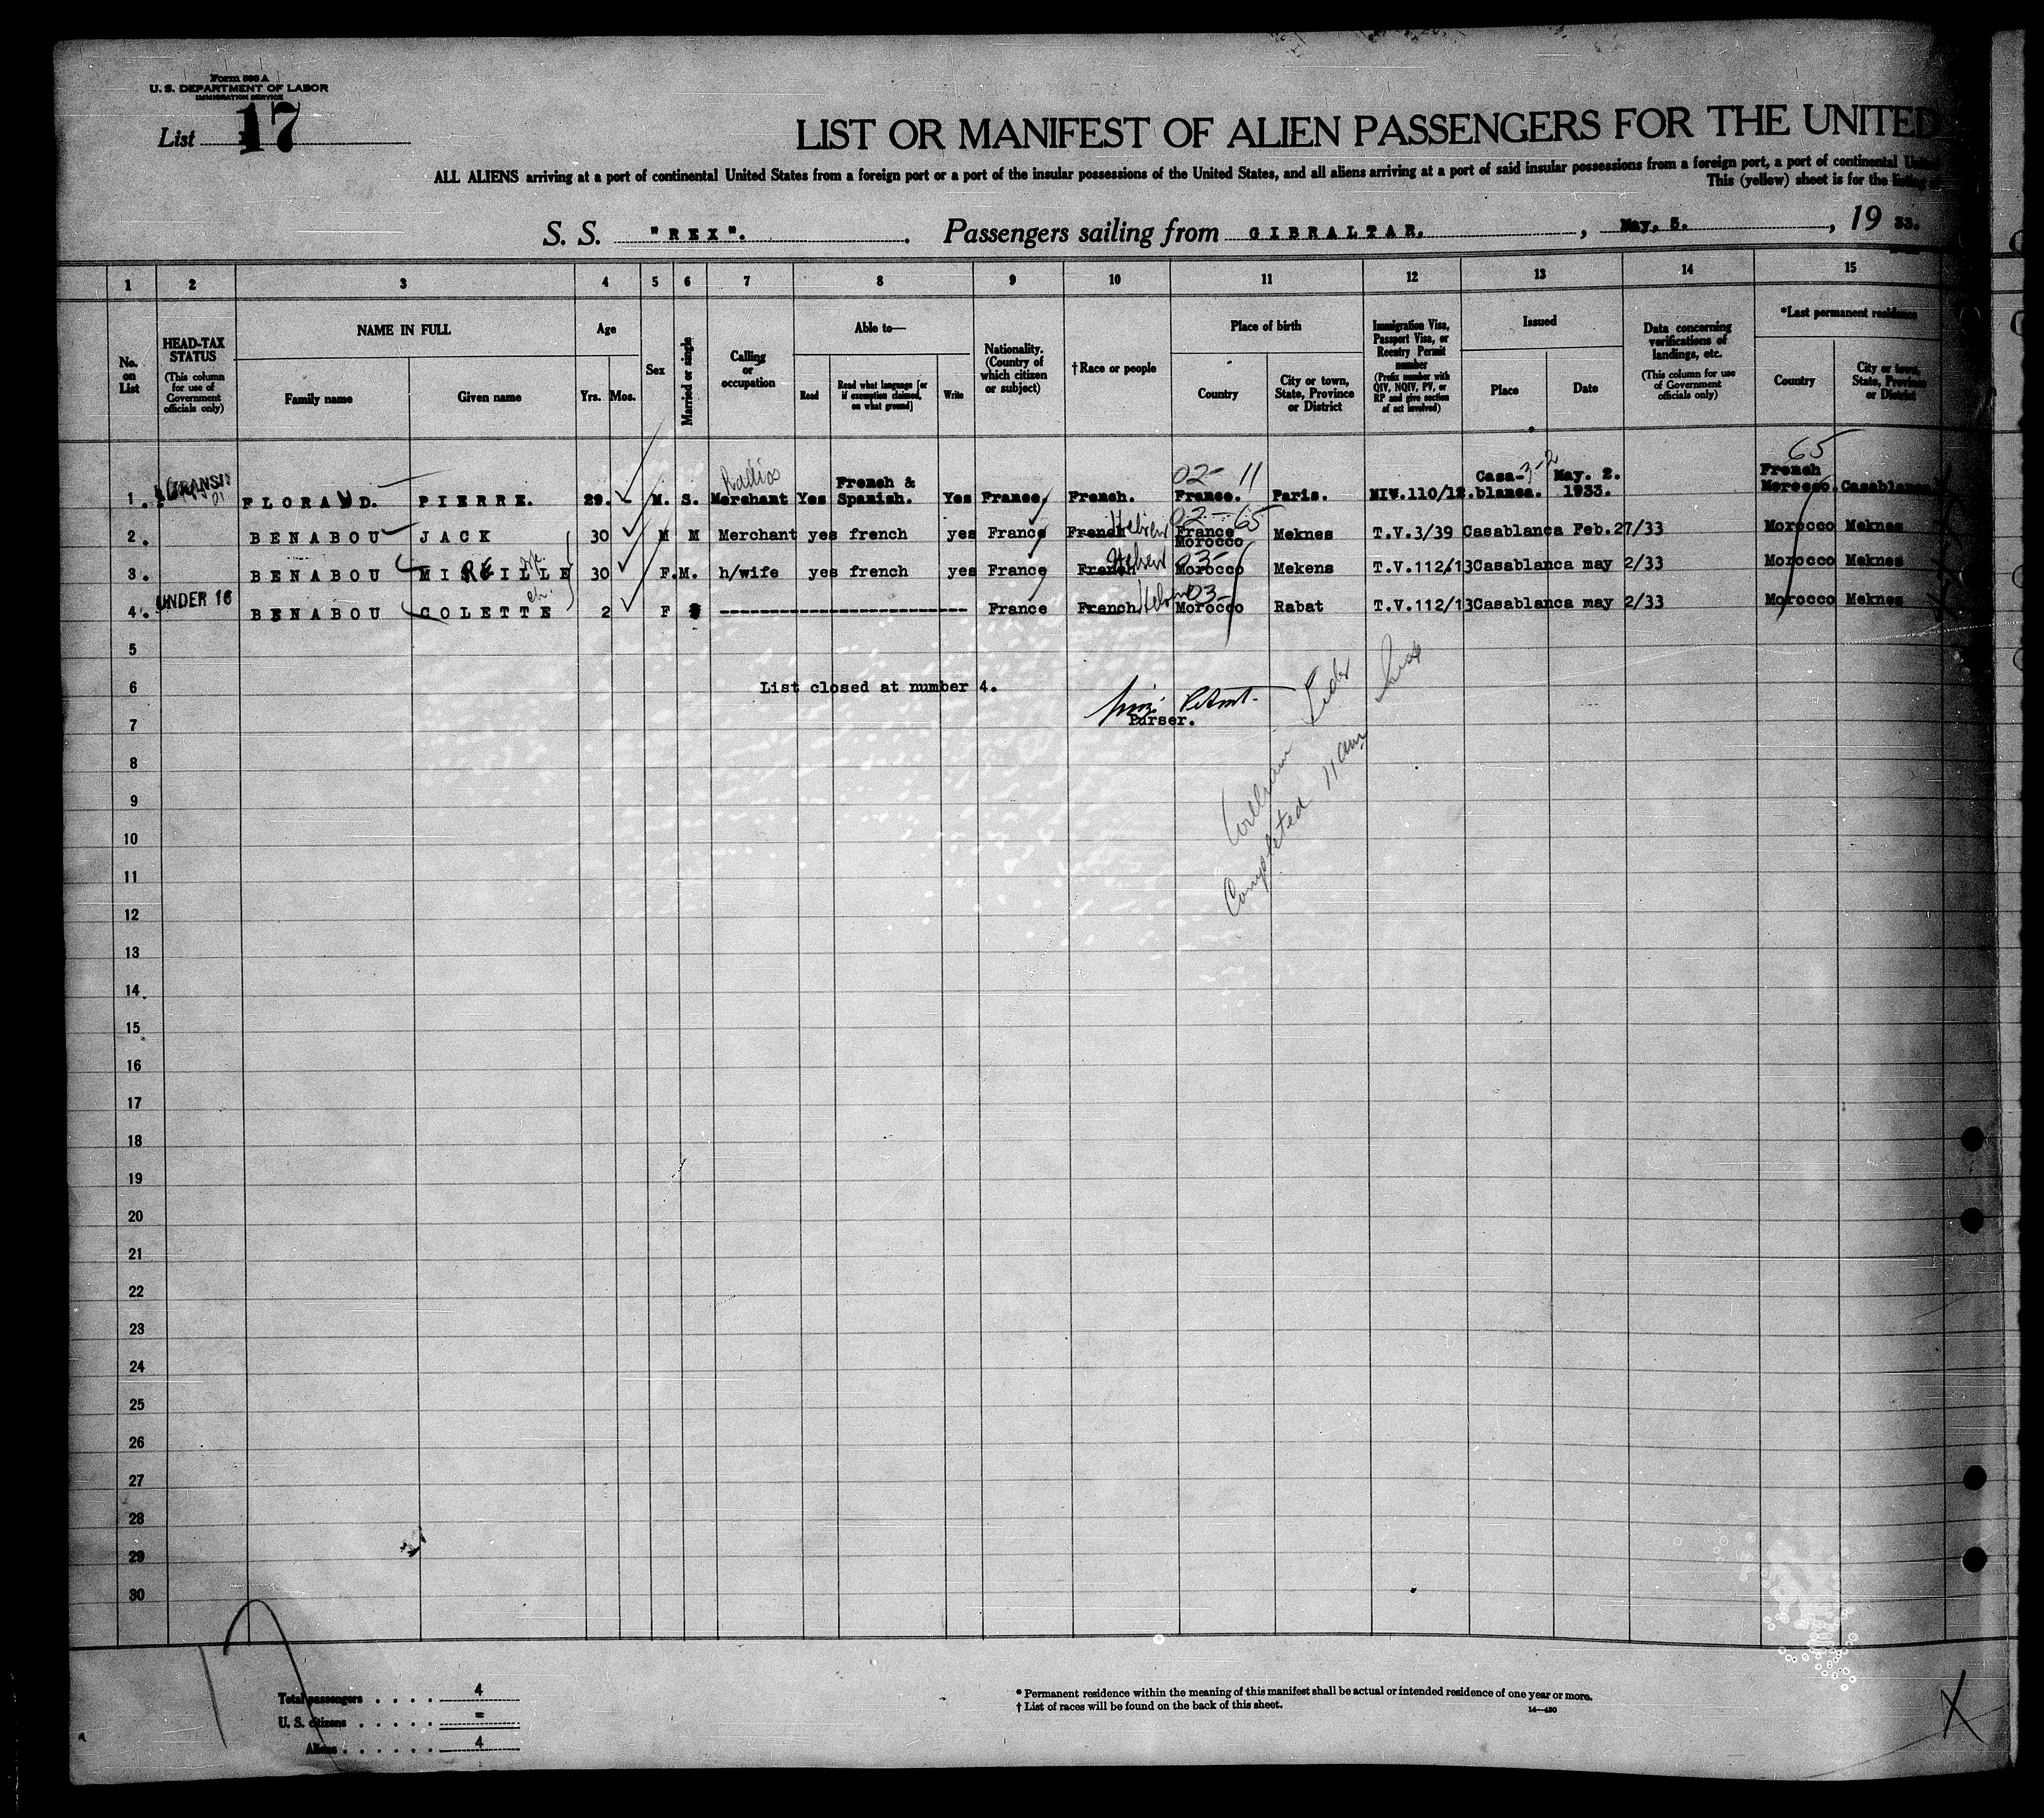 Form 500 A
U. S. DEPARTMENT OF LABOR
IMMIGRATION SERVICE
List 17
LIST OR MANIFEST OF ALIEN PASSENGERS FOR THE UNITED
ALL ALIENS arriving at a port of continental United States from a foreign port or a port of the insular possessions of the United States, and all aliens arriving at a port of said insular possessions from a foreign port, a port of continental United
This (yellow) sheet is for the listing
S. S. "REX". Passengers sailing from GIBRALTAR, May, 5. , 19 33.
1 2 3 4 5 6 7 8 9 10 11 12 13 14 15
No. on List
HEAD-TAX STATUS (This column for use of Government officials only)
NAME IN FULL
Family name Given name
Age
Yrs. Mos.
Sex
Married or single
Calling or occupation
Able to—
Read Read what language [or if exemption claimed, on what ground] Write
Nationality. (Country of which citizen or subject)
†Race or people
Place of birth
Country City or town, State, Province or District
Immigration Visa, Passport Visa, or Reentry Permit number (Prefix number with QIV, NQIV, PV, or RP and give section of act involved)
Issued
Place Date
Data concerning verifications of landings, etc. (This column for use of Government officials only)
*Last permanent residence
Country City or town, State, Province or District
02- 11 3-2 65
1 TRANSIT FLORAND. PIERRE. 29. M. S. Radios Merchant Yes French & Spanish. Yes France, French. France. Paris. NIV.110/12. Casa-blanca. May. 2. 1933. French Morocco. Casablanca
02-65
2 BENABOU JACK 30 M M Merchant yes french yes France French Hebrew France Morocco Meknes T.V.3/39 Casablanca Feb.27/33 Morocco Meknes
03-
3 BENABOU MIREILLE 30 F. M. h/wife yes french yes France French Hebrew Morocco Mekens T.V.112/13 Casablanca may 2/33 Morocco Meknes
ch. 03-
4 UNDER 16 BENABOU COLETTE 2 F S ------------------------- France French Hebrew Morocco Rabat T.V.112/13 Casablanca may 2/33 Morocco Meknes
5
6 List closed at number 4.
7 Purser.
Completed 11 am
8
9
10
11
12
13
14
15
16
17
18
19
20
21
22
23
24
25
26
27
28
29
30
Total passengers . . . . 4
U. S. citizens . . . . . =
Aliens . . . . . . 4
* Permanent residence within the meaning of this manifest shall be actual or intended residence of one year or more.
† List of races will be found on the back of this sheet.
14—430